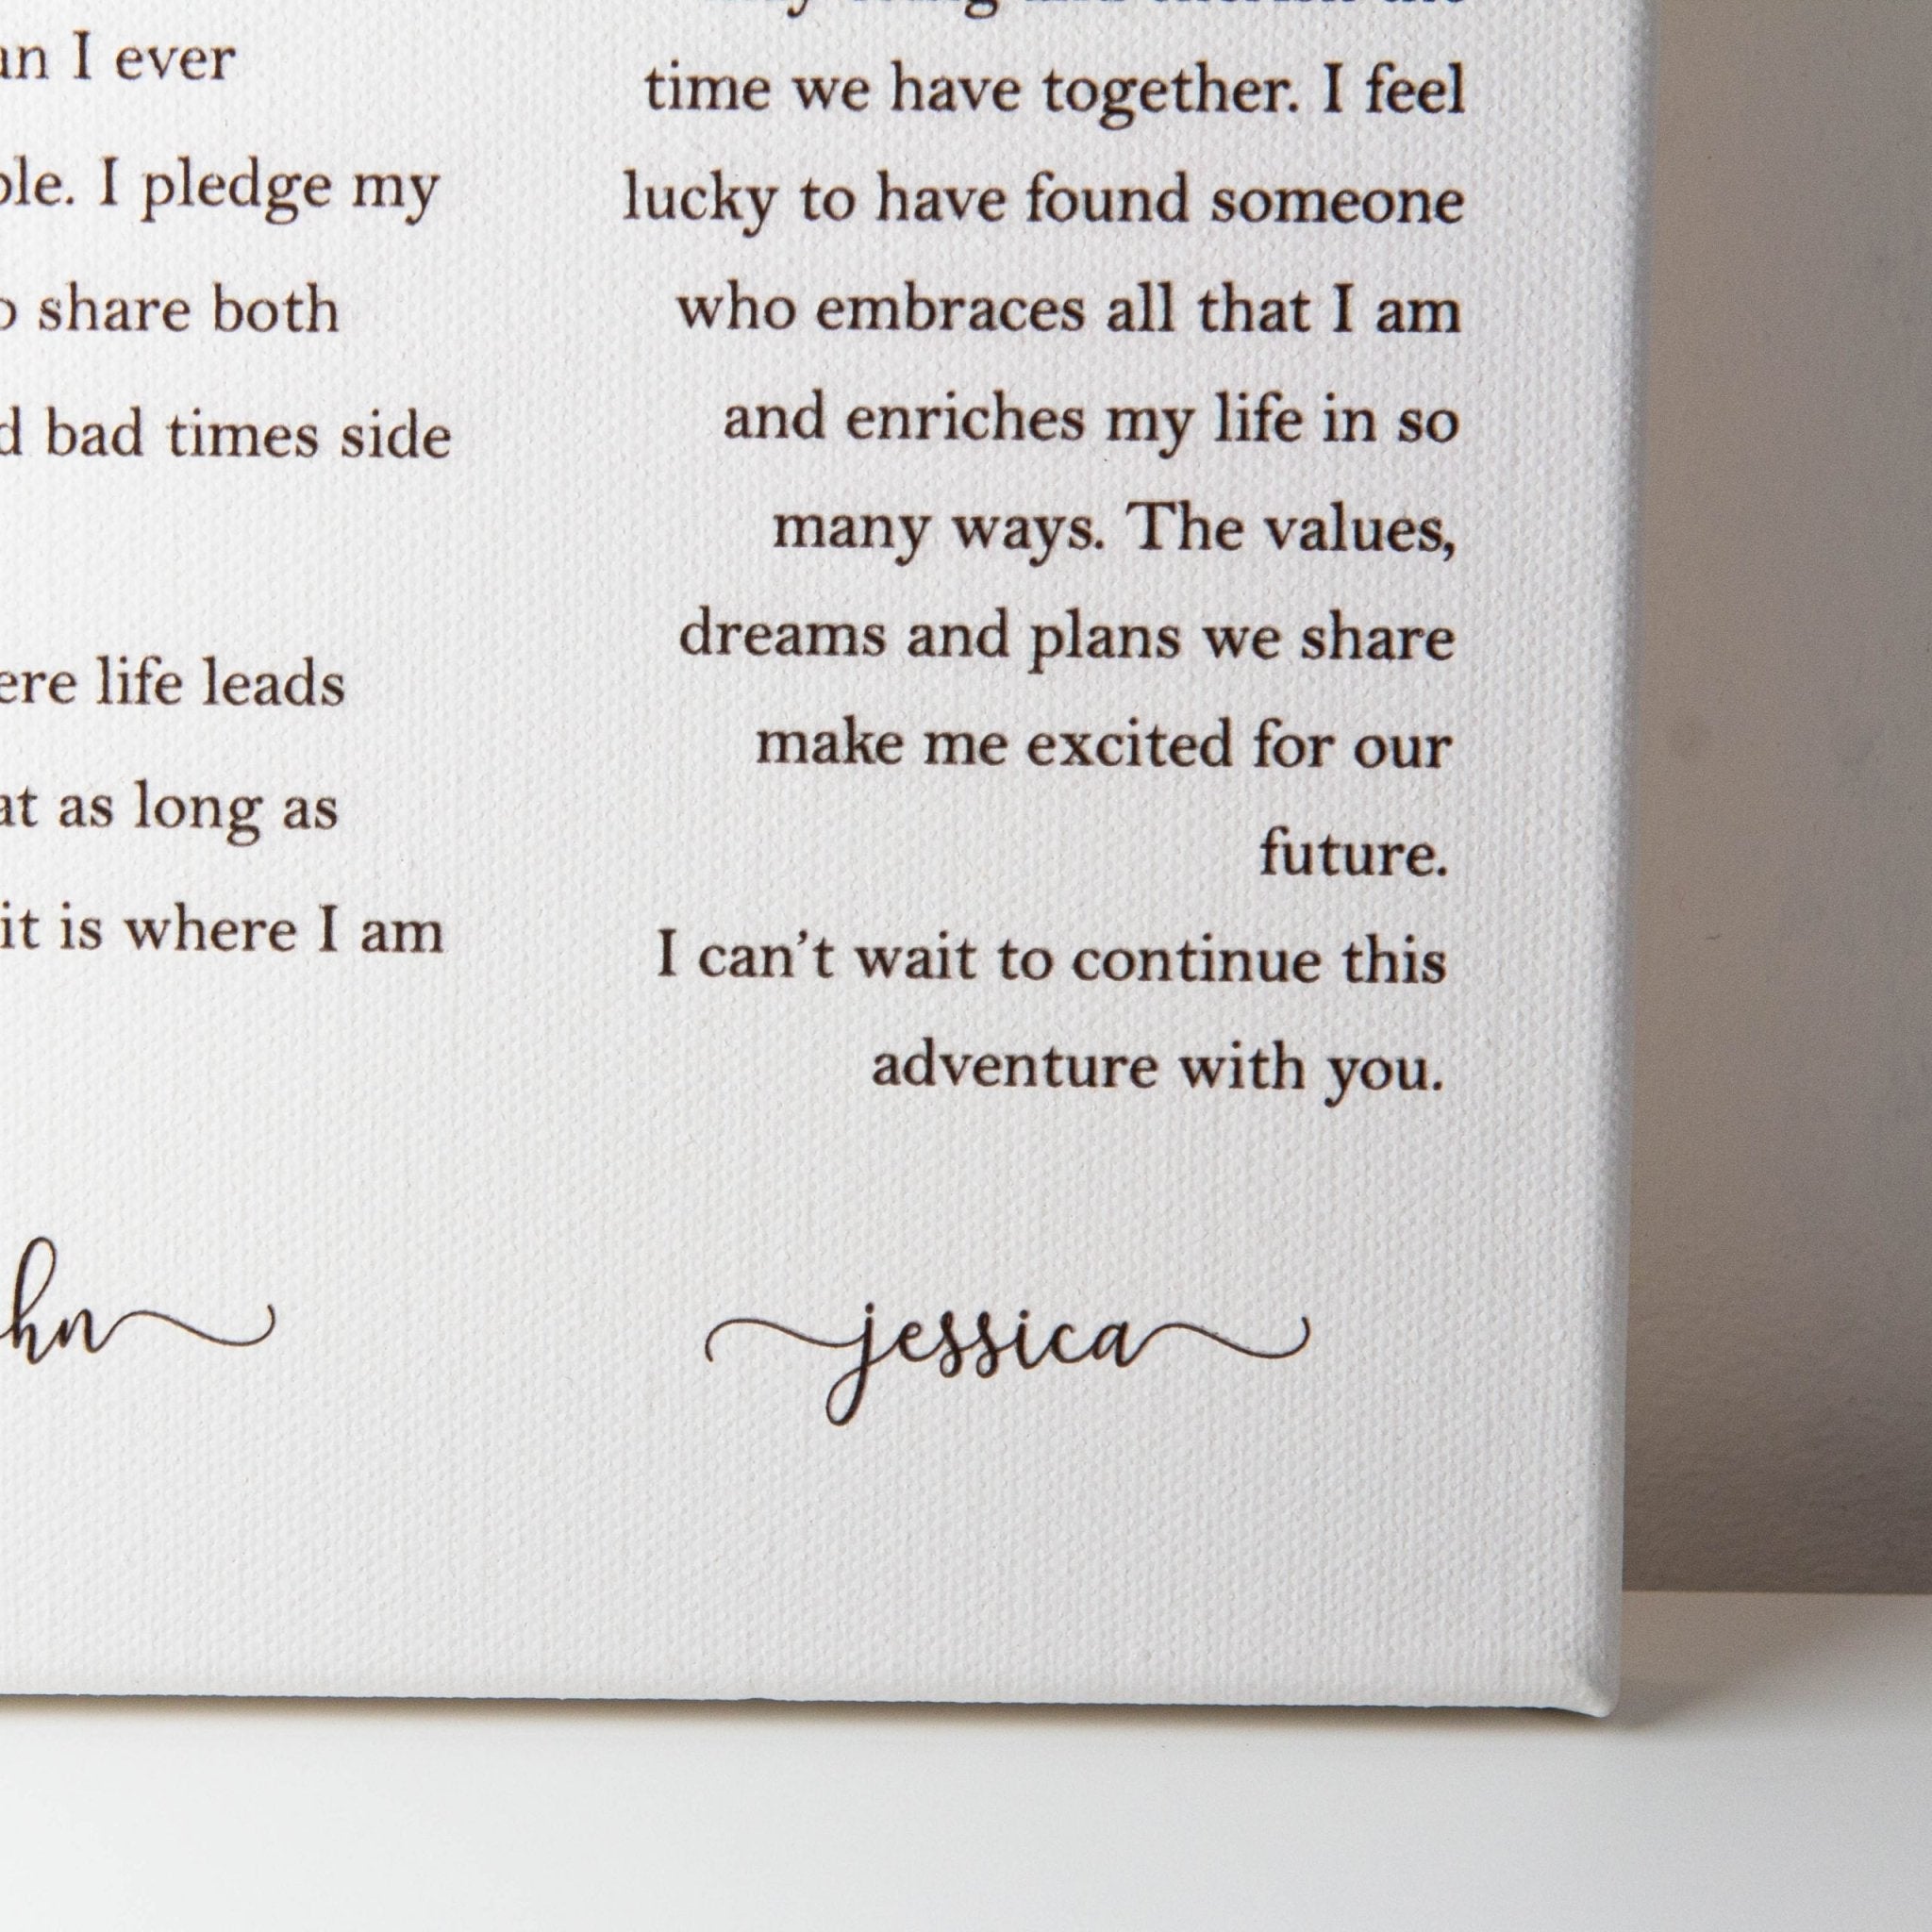 I ever
I pledge my
share both
bad times side
life leads
as long as
it is where I am
time we have together. I feel
lucky to have found someone
who embraces all that I am
and enriches my life in so
many ways. The values,
dreams and plans we share
make me excited for our
future.
I can't wait to continue this
adventure with you.
jessica